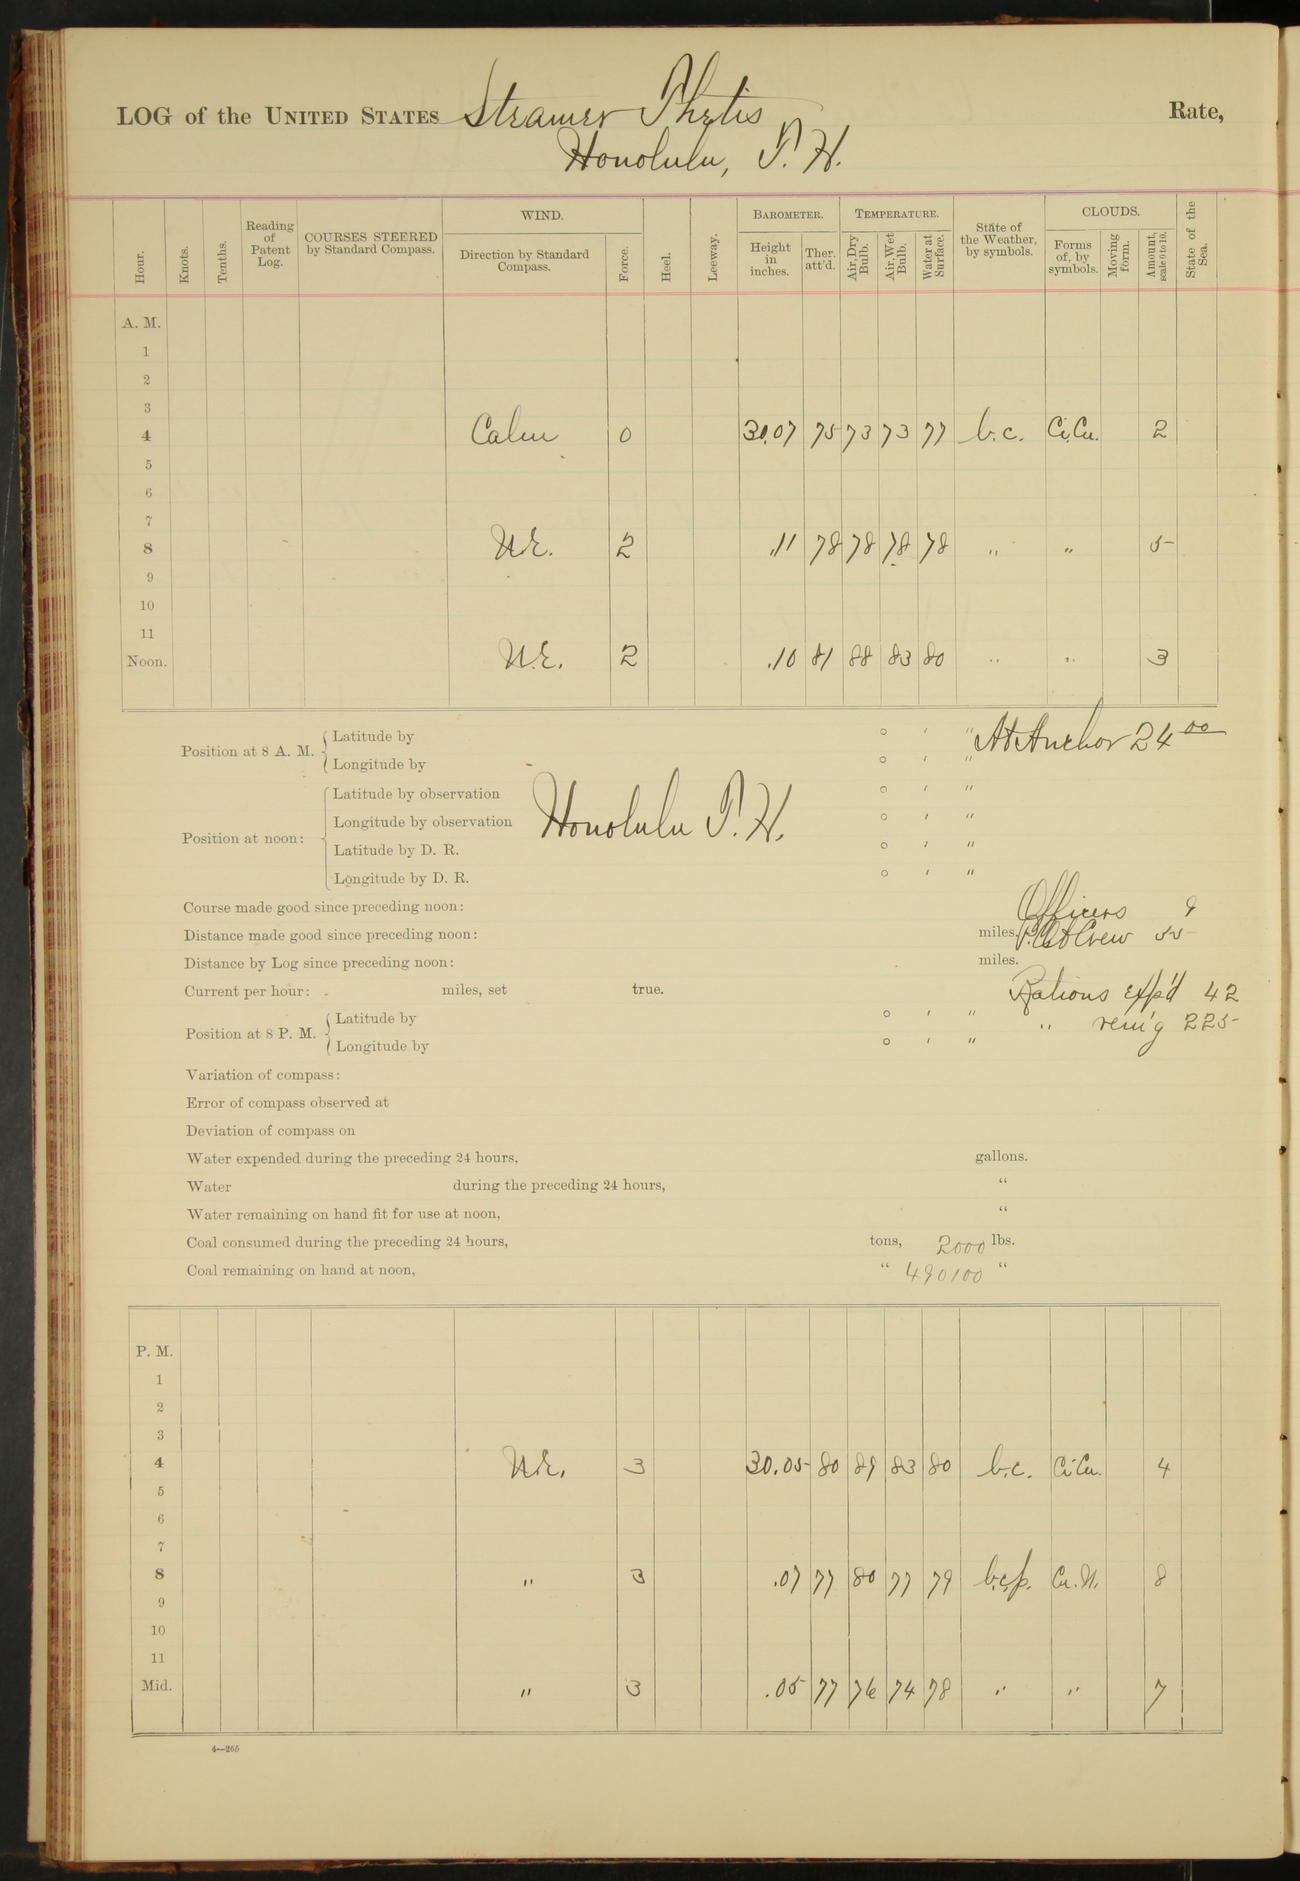 LOG of the UNITED STATES Steamer Thetis Rate,
Honolulu, T. H.
Hour. Knots. Tenths. Reading of Patent Log. COURSES STEERED by Standard Compass. WIND. Direction by Standard Compass. Force. Heel. Leeway. BAROMETER. Height in inches. Ther. att'd. TEMPERATURE. Air, Dry Bulb. Air, Wet Bulb. Water at Surface. State of the Weather, by symbols. CLOUDS. Forms of, by symbols. Moving form. Amount, scale 0 to 10. State of the Sea.
A. M.
1
2
3
4 Calm 0 30.07 75 73 73 77 b.c. Ci.Cu. 2
5
6
7
8 N.E. 2 .11 78 78 78 78 " " 5
9
10
11
Noon. N.E. 2 .10 81 88 83 80 " " 3
Position at 8 A. M. Latitude by ° ′ ″ At Anchor 24 00
Longitude by ° ′ ″
Position at noon: Latitude by observation ° ′ ″
Honolulu T. H.
Longitude by observation ° ′ ″
Latitude by D. R. ° ′ ″
Longitude by D. R. ° ′ ″
Course made good since preceding noon: Officers 9
Distance made good since preceding noon: miles. Crew 55
Distance by Log since preceding noon: miles.
Current per hour: miles, set true. Rations exp'd 42
Position at 8 P. M. Latitude by ° ′ ″ " rem'g 225
Longitude by ° ′ ″
Variation of compass:
Error of compass observed at
Deviation of compass on
Water expended during the preceding 24 hours, gallons.
Water during the preceding 24 hours, "
Water remaining on hand fit for use at noon, "
Coal consumed during the preceding 24 hours, tons, 2000 lbs.
Coal remaining on hand at noon, " 490100 "
P. M.
1
2
3
4 N.E. 3 30.05 80 89 83 80 b.c. Ci Cu. 4
5
6
7
8 " 3 .07 77 80 77 79 b.c.p. Cu. N. 8
9
10
11
Mid. " 3 .05 77 76 74 78 " " 7
4—265